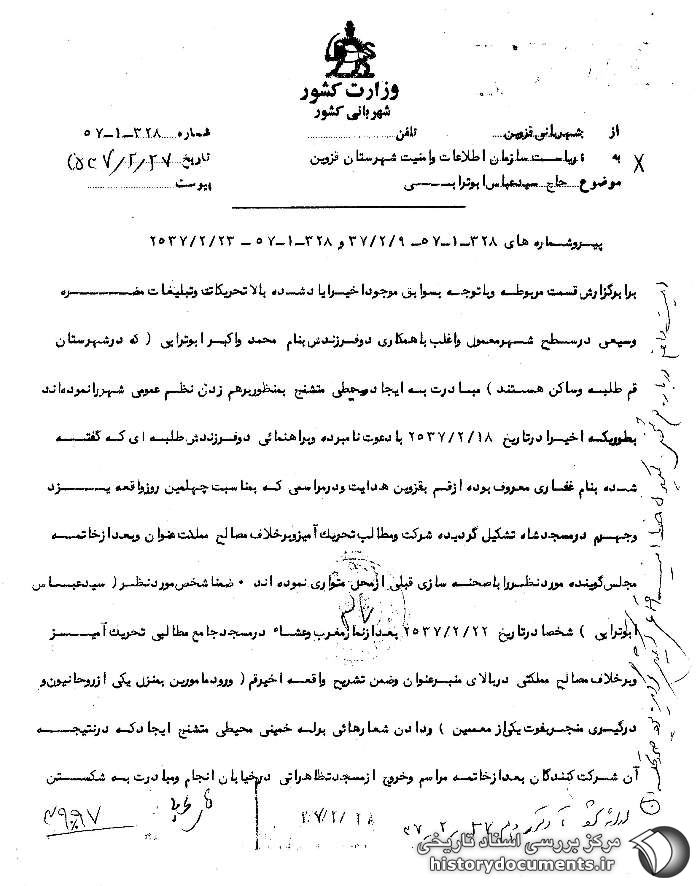 وزارت کشور
شهربانی کشور
از شهربانی قزوین تلفن شماره ۳۲۸-۱-۵۷
به ریاست سازمان اطلاعات وامنیت شهرستان قزوین تاریخ ۲۷/۲/۲۵۳۷
موضوع حاج سیدعباس ابوترابی پیوست
پیروشماره های ۳۲۸-۱-۵۷-۳۷/۲/۹ و ۳۲۸-۱-۵۷-۲۵۳۷/۲/۲۳
برابرگزارش قسمت مربوطه وباتوجه بسوابق موجوداخیرایادشده بالاتحریکات وتبلیغات مضره
وسیعی درسطح شهرمعمول واغلب باهمکاری دوفرزندش بنام محمد واکبرابوترابی (که درشهرستان
قم طلبه وساکن هستند) مبادرت به ایجاد محیطی متشنج بمنظوربرهم زدن نظم عمومی شهررانموده اند
بطوریکه اخیرادرتاریخ ۲۵۳۷/۲/۱۸ بادعوت نامبرده وبراهنمائی دوفرزندش طلبه ای که گفته
شده بنام غفاری معروف بوده ازقم بقزوین هدایت ودرمراسمی که بمناسبت چهلمین روزواقعه یزد
وجهرم درمسجدشاه تشکیل گردیده شرکت ومطالب تحریک آمیزوبرخلاف مصالح مملکت عنوان وبعدازخاتمه
مجلس گوینده موردنظررا باصحنه سازی قبلی ازمحل متواری نموده اند ۰ ضمنا شخص موردنظر (سیدعباس
ابوترابی) شخصا درتاریخ ۲۵۳۷/۲/۲۲ بعدازنمازمغرب وعشاء درمسجدجامع مطالبی تحریک آمیز
وبرخلاف مصالح مملکتی دربالای منبرعنوان وضمن تشریح واقعه اخیرقم (ورودمامورین بمنزل یکی ازروحانیون و
درگیری منجربفوت یکی از معممین) ودادن شعارهائی بوله خمینی محیطی متشنج ایجادکه درنتیجه
آن شرکت کنندگان بعدازخاتمه مراسم وخروج ازمسجدتظاهراتی درخیابان انجام ومبادرت به شکستن
مرکز بررسی اسناد تاریخی
historydocuments.ir